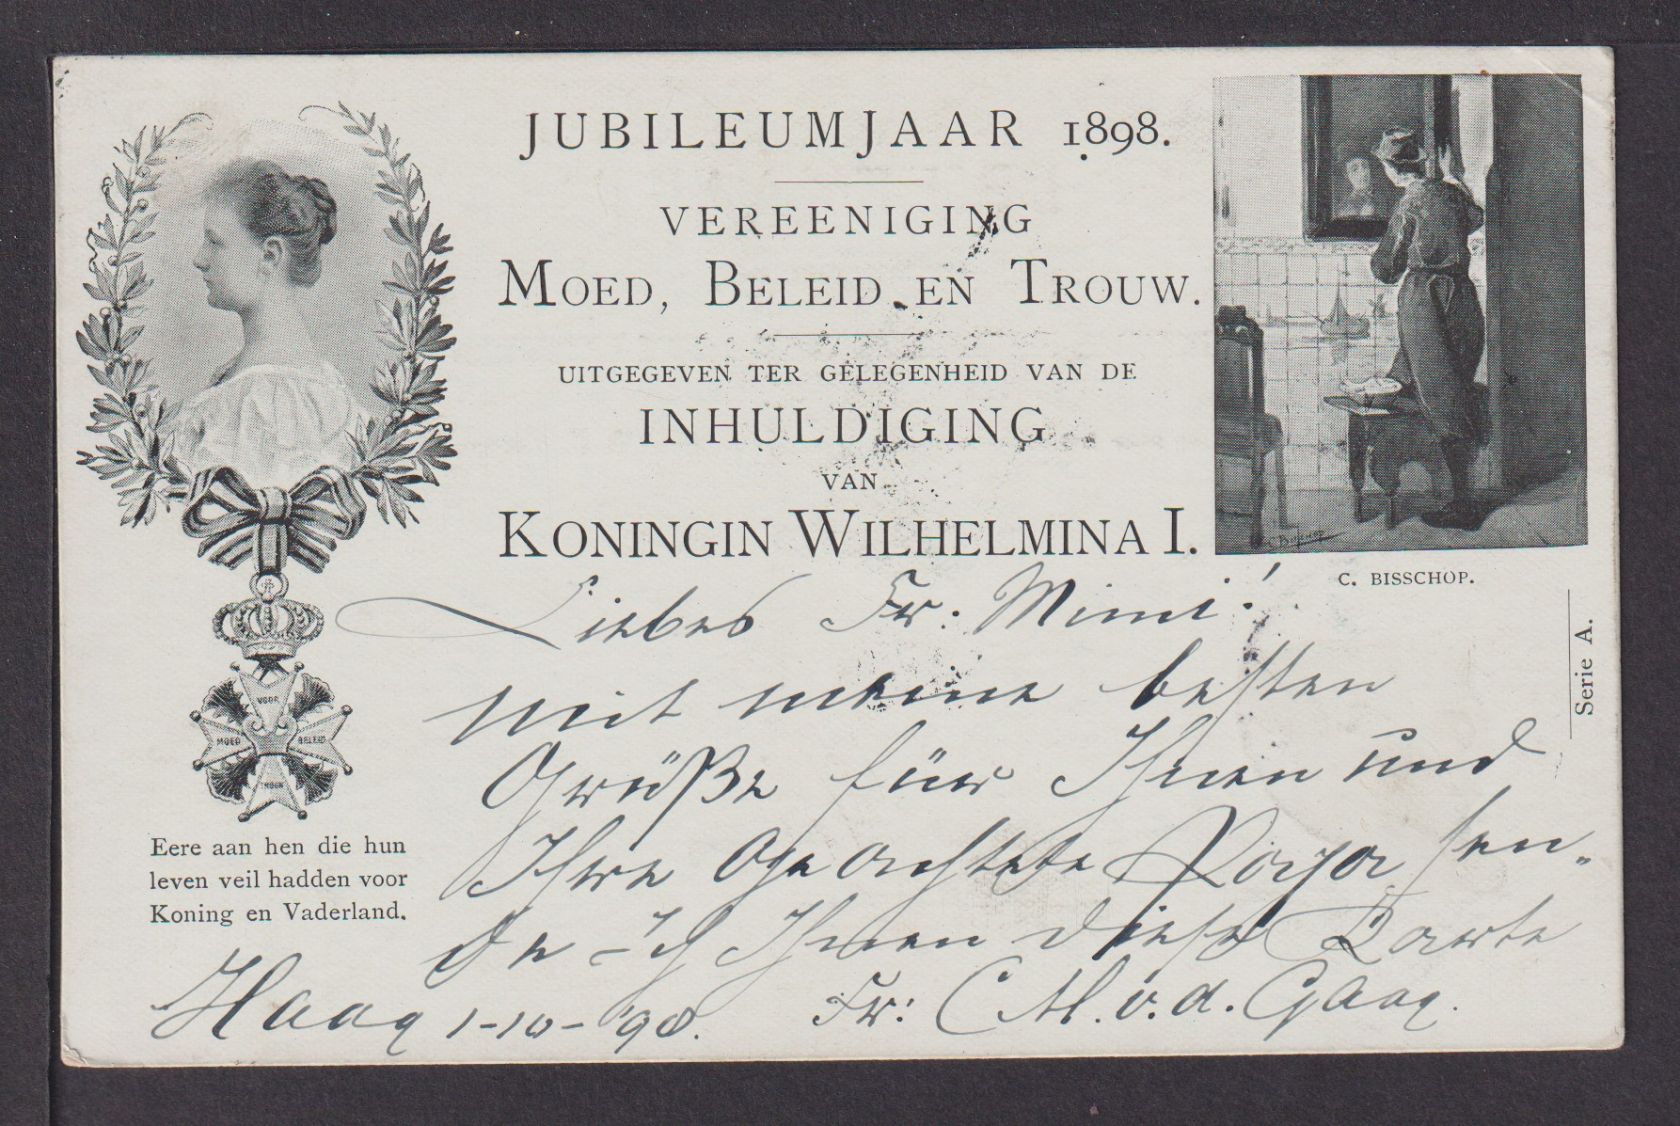 JUBILEUMJAAR 1898.
VEREENIGING
MOED, BELEID EN TROUW.
UITGEGEVEN TER GELEGENHEID VAN DE
INHULDIGING
VAN
KONINGIN WILHELMINA I.
C. BISSCHOP.
Serie A.
VOOR
MOED
BELEID
Eere aan hen die hun
leven veil hadden voor
Koning en Vaderland.
Liebes Fr. Mimi!
mit meine besten
Grüße für Ihnen und
Ihre Geachtete Papa sen-
de ich Ihnen diese Karte
Haag 1-10-'98. Fr: C M. v. d. Gaag.